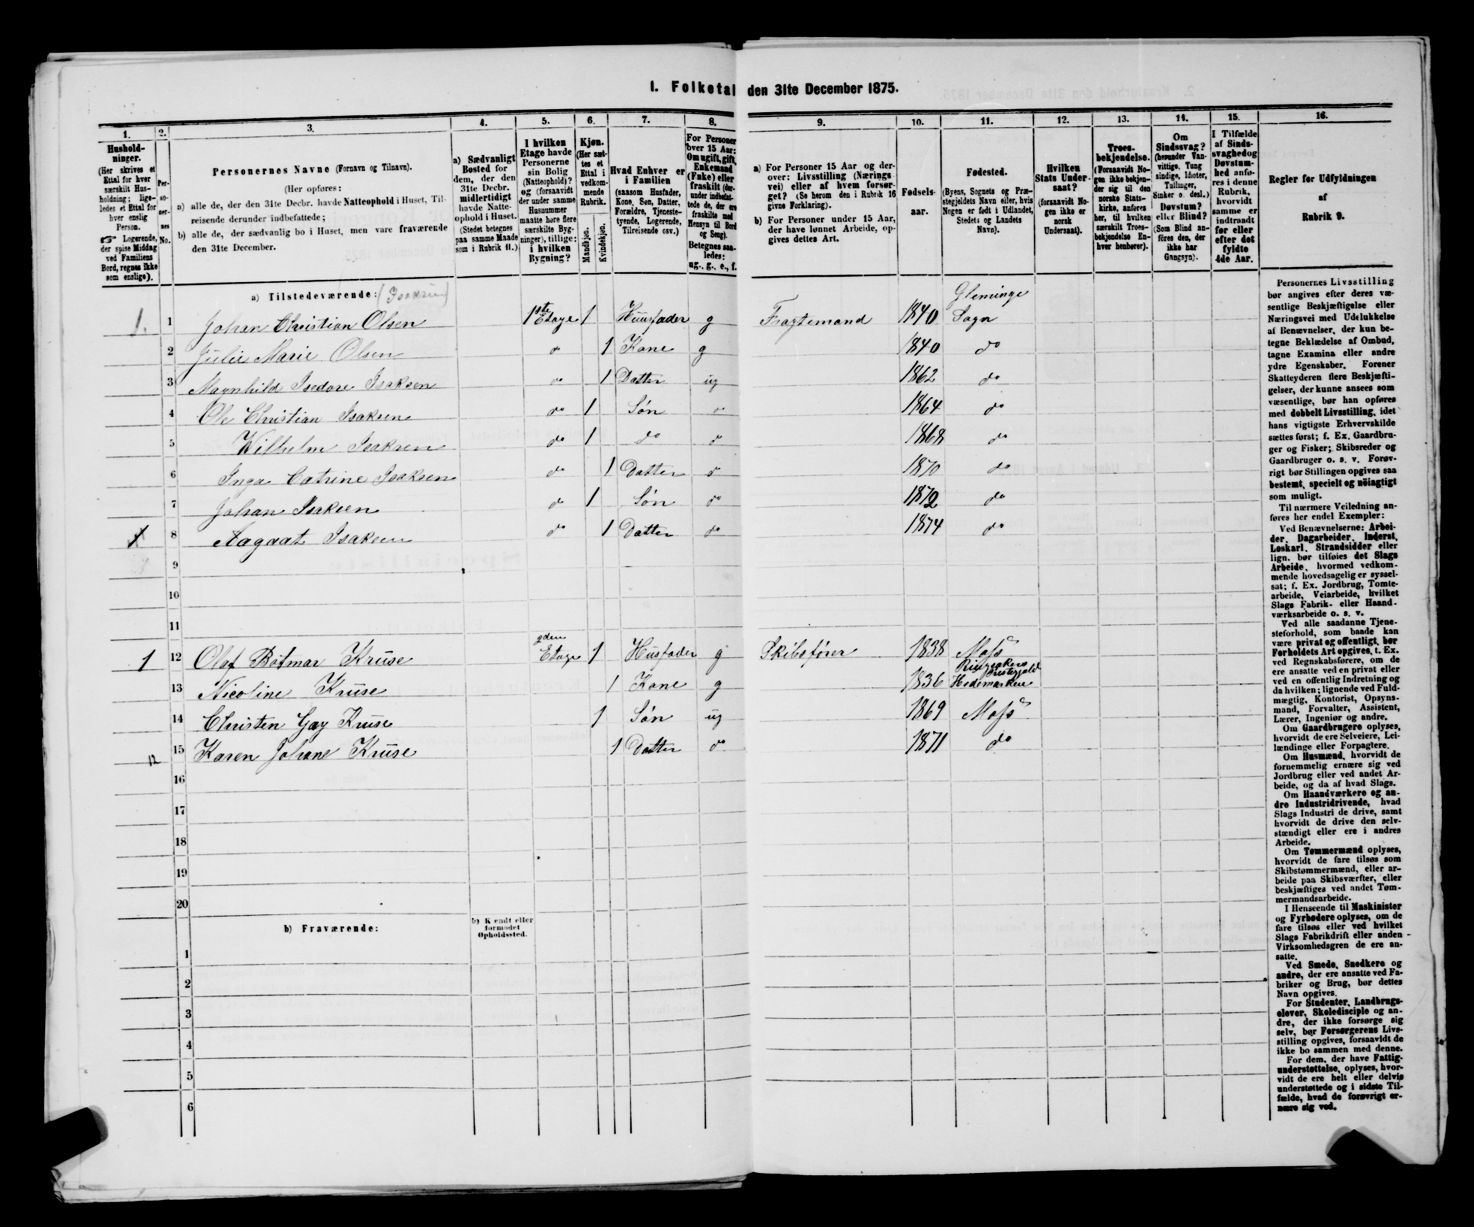 1. Folketal den 31te December 1875.
1. 2. 3. 4. 5. 6. 7. 8. 9. 10. 11. 12. 13. 14. 15. 16.
Hushold-
ninger.
(Her skrives et
Ettal for hver
særskilt Hus-
holdning; lige-
ledes et Ettal for
hver enslig
Person.
☞ Logerende,
der spise Middag
ved Familiens
Bord, regnes ikke
som enslige).
Per-
so-
ner-
nes
No.
Personernes Navne (Fornavn og Tilnavn).
(Her opføres:
a) alle de, der den 31te Decbr. havde Natteophold i Huset, Til-
reisende derunder indbefattede;
b) alle de, der sædvanlig bo i Huset, men vare fraværende
den 31te December.
a) Sædvanligt
Bosted for
dem, der den
31te Decbr.
midlertidigt
havde Natte-
ophold i Huset.
(Stedet betegnes
paa samme Maade
som i Rubrik 11.)
I hvilken
Etage havde
Personerne
sin Bolig
(Natteophold)?
og (forsaavidt
der under samme
Husnummer
maatte høre flere
særskilte Byg-
ninger), tillige:
i hvilken
Bygning?
Kjøn.
(Her sæt-
tes et
Ettal i
vedkom-
mende
Rubrik.
Mandkjøn.
Kvindekjøn.
Hvad Enhver er
i Familien
(saasom Husfader,
Kone, Søn, Datter,
Forældre, Tjeneste-
tyende, Logerende,
Tilreisende osv.)
For Personer
over 15 Aar:
Om ugift, gift,
Enkemand
(Enke) eller
fraskilt
Betegnes saa-
ledes:
ug., g., e., f.
a) For Personer 15 Aar og der-
over: Livsstilling (Nærings-
vei) eller af hvem forsør-
get? (Se herom den i Rubrik 16
givne Forklaring).
b) For Personer under 15 Aar,
der have lønnet Arbeide, op-
gives dettes Art.
Fødsels-
aar.
Fødested.
(Byens, Sognets og Præ-
stegjeldets Navn eller, hvis
Nogen er født i Udlandet,
Stedets og Landets
Navn).
Hvilken
Stats Under-
saat?
(forsaavidt No-
gen ikke er
norsk
Undersaat).
Troes-
bekjendelse.
(Forsaavidt No-
gen ikke bekjen-
der sig til den
norske Stats-
kirke, anføres
her, til hvilken
særskilt Troes-
bekjendelse En-
hver henhører).
Om
Sindssvag?
(herunder Van-
vittige, Tung-
sindige, Idioter,
Tullinger,
Sinker o. desl.)
Døvstum?
eller Blind?
(Som Blind an-
føres den, der
ikke har
Gangsyn).
I Tilfælde
af Sinds-
svaghed og
Døvstum-
hed anfø-
res i denne
Rubrik,
hvorvidt
samme er
indtraadt
før eller
efter det
fyldte
4de Aar.
Regler for Udfyldningen
af
Rubrik 9.
a) Tilstedeværende: (Isaksen)
1. 1 Johan Christian Olsen 1ste Etage 1 Huusfader g Fragtemand 1840 Gleminge Sogn
2 Julie Marie Olsen do 1 Kone g 1840 do
3 Magnhild Isedore Isaksen do 1 Datter ug 1862 do
4 Ole Christian Isaksen do 1 Søn do 1864 do
5 Wilhelm Isaksen do 1 do do 1868 do
6 Inga Catrine Isaksen do 1 Datter do 1870 do
7 Johan Isaksen do 1 Søn do 1872 do
8 Aagaat Isaksen do 1 Datter do 1874 do
9
10
11
1 12 Olaf Bøtmar Kruse 2den Etage 1 Husfader g Skibsfører 1838 Moss
13 Nicoline Kruse 1 Kone g 1836 Ringsakers Prestegjeld Hedemarken
14 Christen Gay Kruse 1 Søn ug 1869 Moss
12 15 Karen Johane Kruse 1 Datter do 1871 do
16
17
18
19
20
b) Fraværende:
b) Kjendt eller
formodet
Opholdssted.
1
2
3
4
5
6
Personernes Livsstilling
bør angives efter deres væ-
sentlige Beskjæftigelse eller
Næringsvei med Udelukkelse
af Benævnelser, der kun be-
tegne Beklædelse af Ombud,
tagne Examina eller andre
ydre Egenskaber. Forener
Skatteyderen flere Beskjæfti-
gelser, der kunne ansees som
væsentlige, bør han opføres
med dobbelt Livsstilling, idet
hans vigtigste Erhvervskilde
sættes først; f. Ex. Gaardbru-
ger og Fisker; Skibsreder og
Gaardbruger o. s. v. Forøv-
rigt bør Stillingen opgives saa
bestemt, specielt og nøiagtigt
som muligt.
Til nærmere Veiledning an-
føres her endel Exempler:
Ved Benævnelserne: Arbei-
der, Dagarbeider, Inderst,
Løskarl, Strandsidder eller
lign. bør tilføies det Slags
Arbeide, hvormed vedkom-
mende hovedsagelig er syssel-
sat; f. Ex. Jordbrug, Tomte-
arbeide, Veiarbeide, hvilket
Slags Fabrik- eller Haand-
værksarbeide o. s. v.
Ved alle saadanne Tjene-
steforhold, som baade kan
være privat og offentligt, bør
Forholdets Art opgives, t. Ex.
ved Regnskabsførere, om de
ere ansatte ved en privat eller
ved en offentlig Indretning og
da hvilken; lignende ved Fuld-
mægtig, Kontorist, Opsyns-
mand, Forvalter, Assistent,
Lærer, Ingeniør og andre.
Om Gaardbrugere oplyses,
hvorvidt de ere Selveiere, Lei-
lændinge eller Forpagtere.
Om Husmænd, hvorvidt de
fornemmelig ernære sig ved
Jordbrug eller ved andet Ar-
beide, og da af hvad Slags.
Om Haandværkere og an-
dre Industridrivende, hvad
Slags Industri de drive, samt
hvorvidt de drive den selv-
stændigt eller ere i andres
Arbeide.
Om Tømmermænd oplyses,
hvorvidt de fare tilsøs som
Skibstømmermænd, eller ar-
beide paa Skibsværfter, eller
beskjæftiges ved andet Tøm-
mermandsarbeide.
I Henseende til Maskinister
og Fyrbødere oplyses, om de
fare tilsøs eller ved hvilket
Slags Fabrikdrift eller anden
Virksomhedsgren de ere an-
satte.
Ved Smede, Snedkere og
andre, der ere ansatte ved Fa-
briker og Brug, bør dettes
Navn opgives.
For Studenter, Landbrugs-
elever, Skoledisciple og an-
dre, der ikke forsørge sig
selv, bør Forsørgerens Livs-
stilling opgives, forsaavidt de
ikke bo sammen med denne.
For dem, der have Fattig-
understøttelse, oplyses, hvor-
vidt de ere helt eller delvis
understøttede og i sidste Til-
fælde, hvad de forøvrigt er-
nære sig ved.